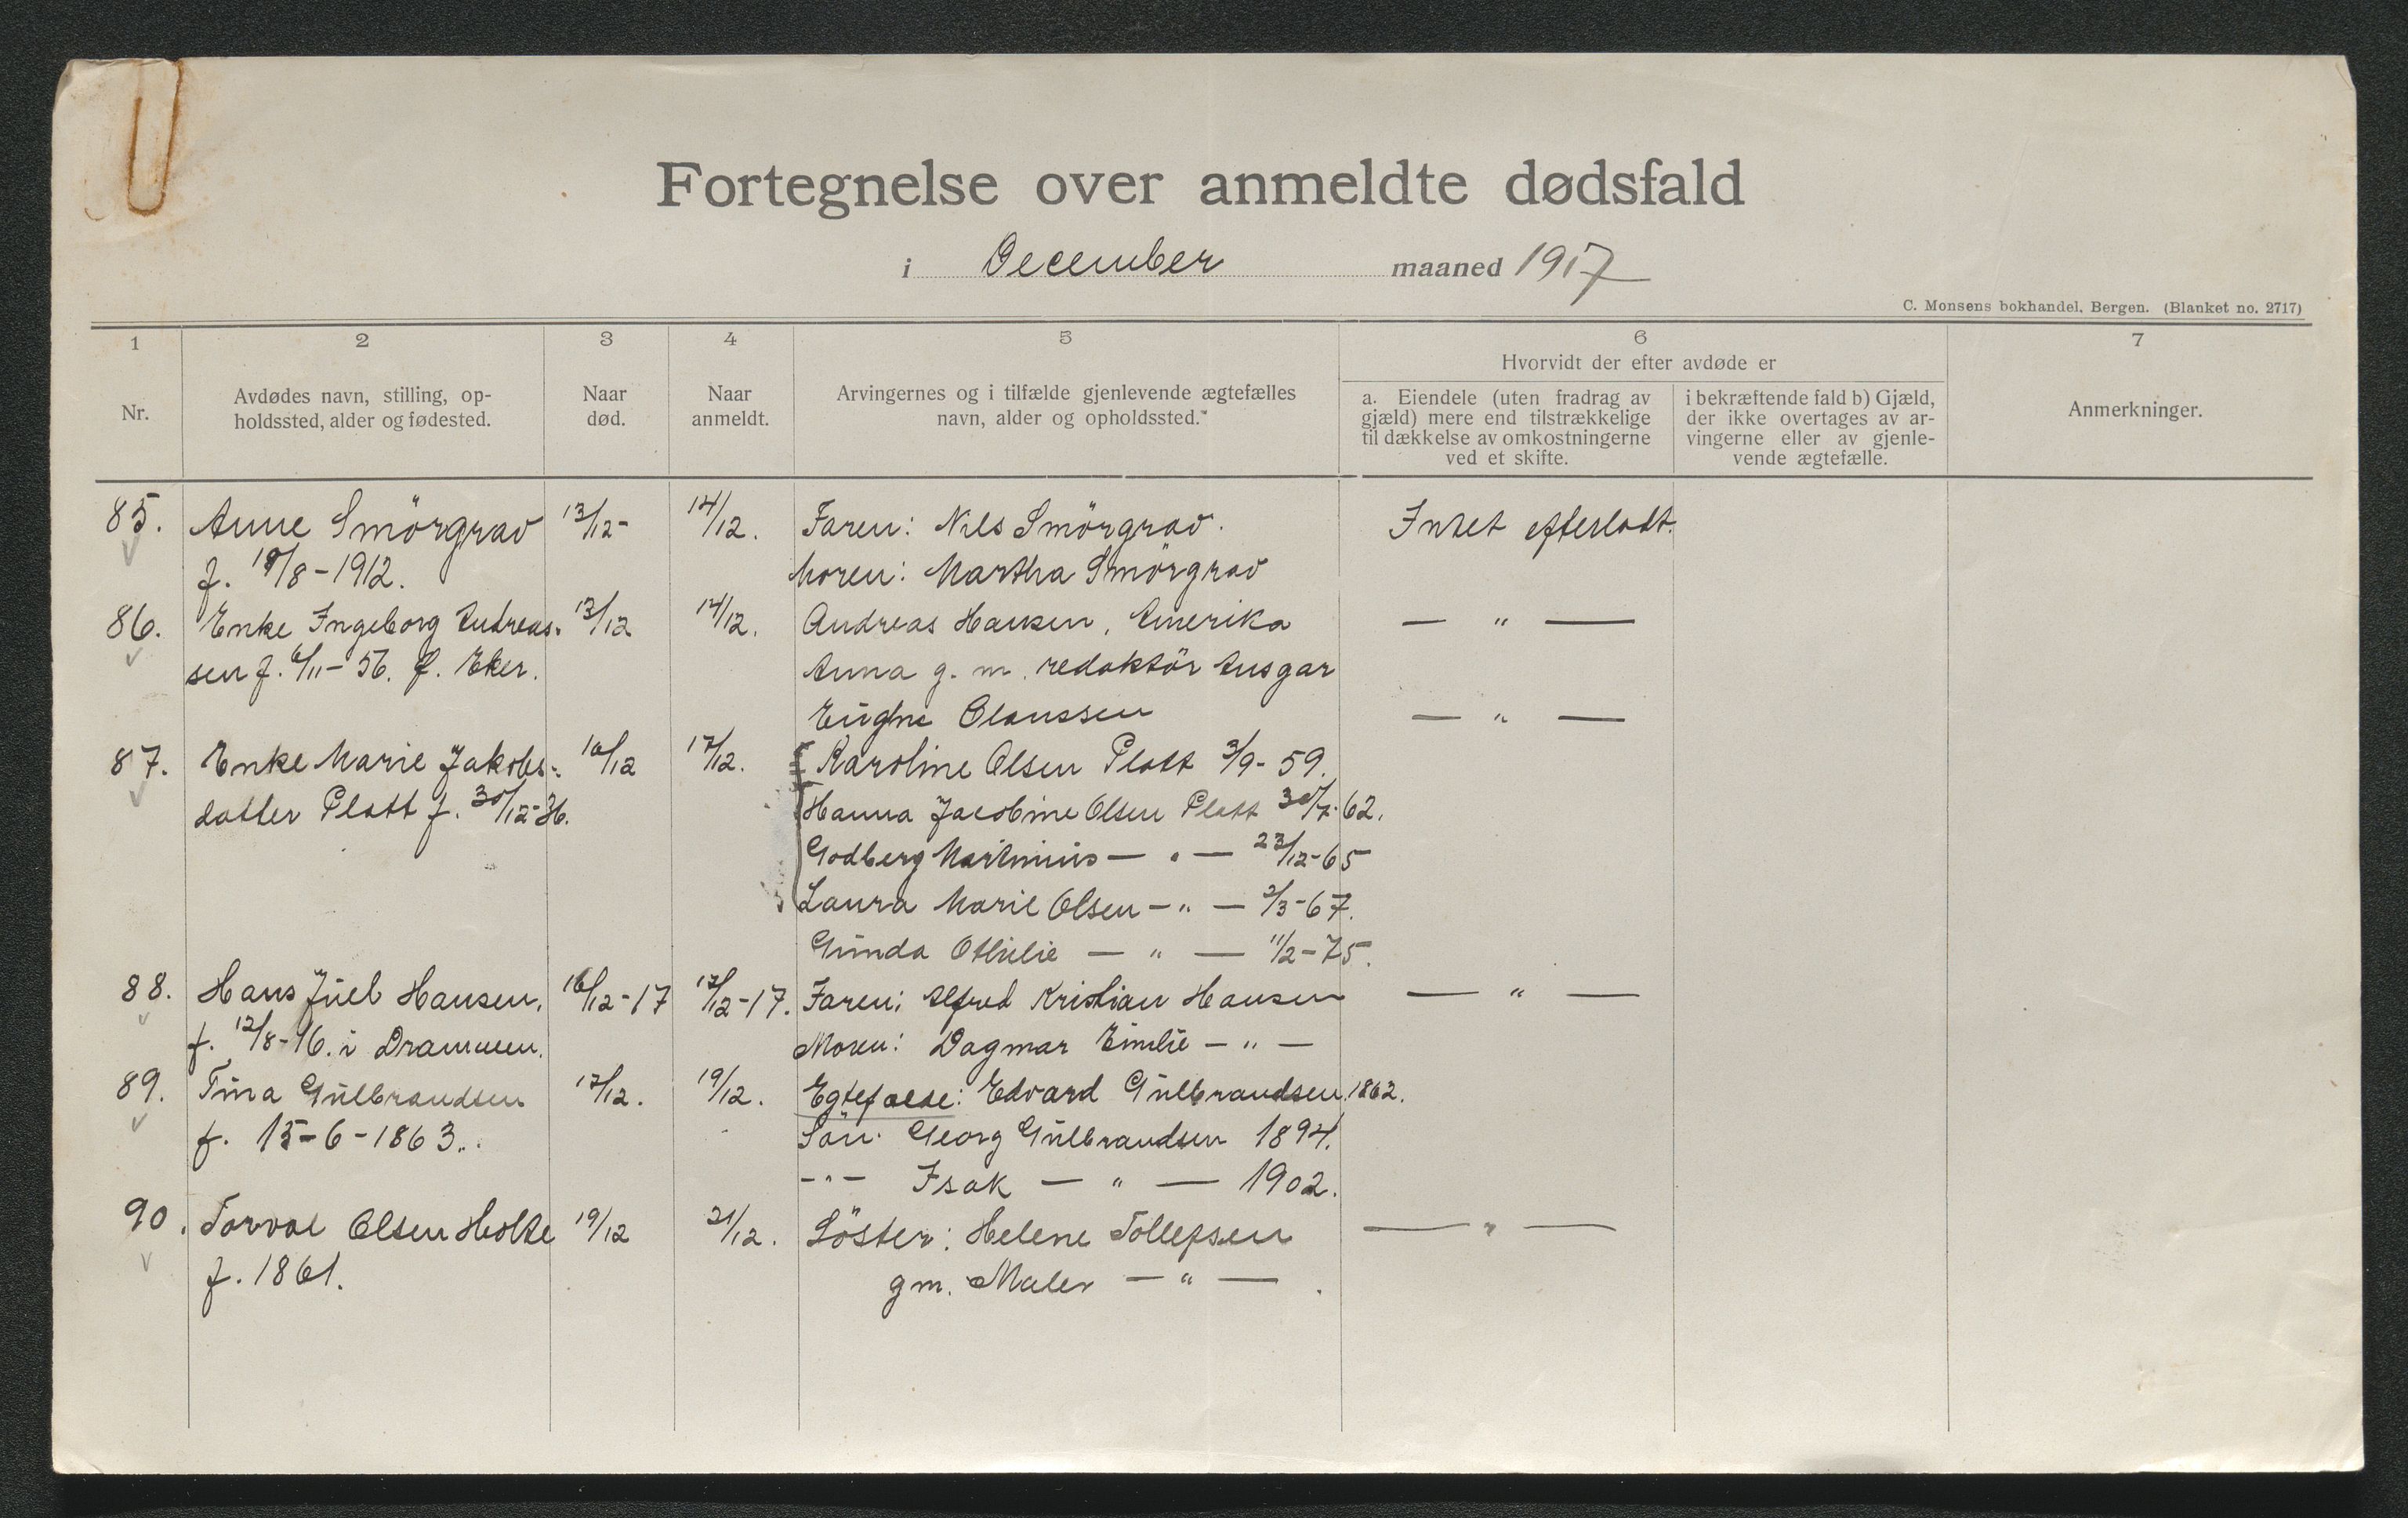 Fortegnelse over anmeldte dødsfald
i December maaned 1917
C. Monsens bokhandel, Bergen. (Blanket no. 2717)
1 2 3 4 5 6 7
Nr.
Avdødes navn, stilling, op-
holdssted, alder og fødested.
Naar
død.
Naar
anmeldt.
Arvingernes og i tilfælde gjenlevende ægtefælles
navn, alder og opholdssted.
Hvorvidt der efter avdøde er
a. Eiendele (uten fradrag av
gjæld) mere end tilstrækkelige
til dækkelse av omkostningerne
ved et skifte.
i bekræftende fald b) Gjæld,
der ikke overtages av ar-
vingerne eller av gjenle-
vende ægtefælle.
Anmerkninger.
85. Anne Smörgrav 13/12- 14/12. Faren: Nils Smörgrav. Intet efterladt.
f. /8-1912. Moren: Martha Smörgrav
86. Enke Ingeborg Andreas- 13/12 14/12. Andreas Hansen, Amerika — " —
sen f. 6/11-56. f. Eker. Anna g. m. redaktör Ansgar
Eugene Olaussen — " —
87. Enke Marie Jakobs- 16/12 17/12. Karoline Olsen Platt 3/9-59.
datter Platt f. 30/12-36. Hanna Jacobine Olsen Platt 30/7-62.
Godberg Martinius — " — 23/12-65
Laura Marie Olsen — " — 2/3-67.
Gunda Othilie — " — 11/2-75.
88. Hans Juel Hansen, 16/12-17 17/12-17. Faren: Alfred Kristian Hansen — " —
f. 12/8-16. i Drammen. Moren: Dagmar Emilie — " —
89. Tina Gulbrandsen 17/12. 19/12. Egtefælle: Edvard Gulbrandsen 1862.
f. 15-6-1863. Sön: Georg Gulbrandsen 1894.
-"- Isak — " — 1902.
90. Torval Olsen Holte 19/12 21/12. Söster: Helene Tollefsen — " —
f. 1861. gm. Maler — " —